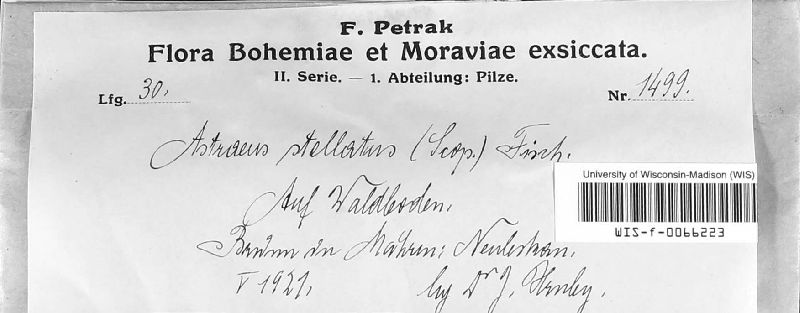 F. Petrak
Flora Bohemiae et Moraviae exsiccata.
II. Serie. — 1. Abteilung: Pilze.
Lfg. 30.
Nr. 1499.
Astraeus stellatus (Scop.) Fisch.
Auf Waldboden.
University of Wisconsin-Madison (WIS)
WIS-f-0066223
Brünn in Mähren:
V 1921. leg Dr J. Hruby.